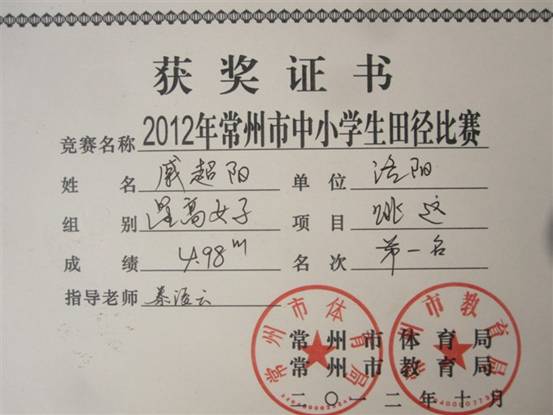 获奖证书
竞赛名称 2012年常州市中小学生田径比赛
姓名 戚超阳 单位 洛阳
组别 高女子 项目 跳远
成绩 4.98m 名次 第一名
指导老师 秦 云
常州市体育局
常州市教育局
二〇一二年十月
常州市体育局
常州市教育局